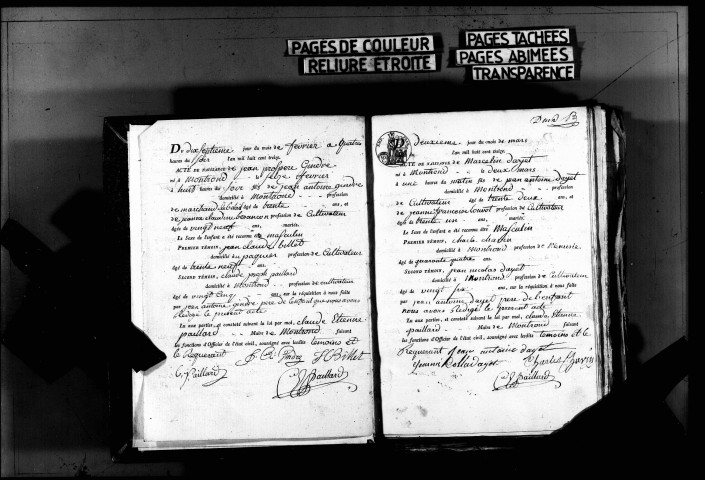 PAGES DE COULEUR
RELIURE ETROITE
PAGES TACHÉES
PAGES ABIMÉES
TRANSPARENCE
Du dix septième jour du mois de fevrier a quatre
heures du soir l'an mil huit cent treize.
ACTE DE NAISSANCE de jean prospere Gindre
né à Montrond le seize fevrier
à huit heures du soir fils de jean antoine gindre
domicilié à Montrond profession
de marchand de âgé de trente ans, et
de jeanne claudine profession de Cultivateur
âgée de vingt neuf ans, mariée.
Le Sexe de l'enfant a été reconnu être masculin
PREMIER TÉMOIN, jean claude billet
domicilié à profession de Cultivateur
âgé de trente neuf ans.
SECOND TÉMOIN, claude joseph paillard
domicilié à Montrond profession de cultivateur
âgé de vingt cinq ans, sur la réquisition à nous faite
par jean antoine gindre pere de l'enfant que nous avons
redigé le present acte
Et ont parties, et constaté suivant la loi par moi, claude Etienne
paillard Maire de Montrond faisant
les fonctions d'Officier de l'état civil, soussigné avec lesdits temoins et
le Requerant
C. Paillard
Paillard
deuxieme jour du mois de mars
l'an mil huit cent treize.
ACTE DE NAISSANCE de Marcelin dayet
né à Montrond le deux mars
à une heures du matin fils de jean antoine dayet
domicilié à Montrond profession
de Cultivateur âgé de trente deux ans, et
de jeanne françoise profession de Cultivateur
âgée de trente un ans, mariée.
Le Sexe de l'enfant a été reconnu être Masculin
PREMIER TÉMOIN, charle
domicilié à Montrond profession de Menuisie
âgé de quarante quatre ans.
SECOND TÉMOIN, jean nicolas dayet
domicilié à Montrond profession de Cultivateur
âgé de vingt six ans, sur la réquisition à nous faite
par jean antoine dayet pere de l'enfant
nous avons redigé le present acte
Et ont parties, et constaté suivant la loi par moi, claude Etienne
paillard Maire de Montrond faisant
les fonctions d'Officier de l'état civil, soussigné avec lesdits temoins et le
Requerant jean antoine dayet
Paillard